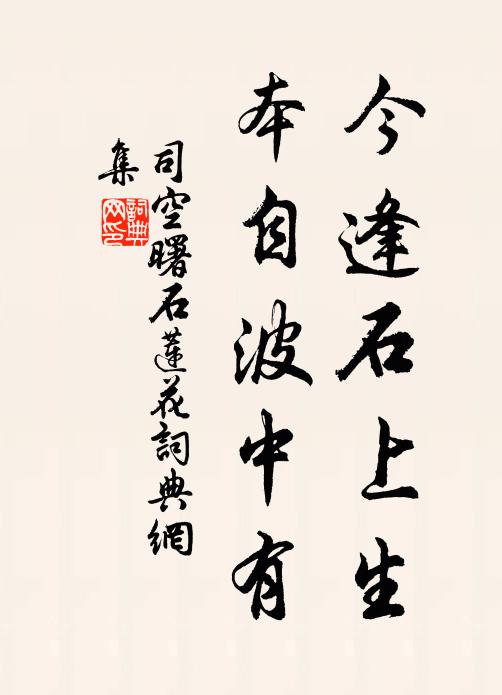 今逢石上生
本自波中有
司空曙石蓮花詞典網
集
詞典
网印